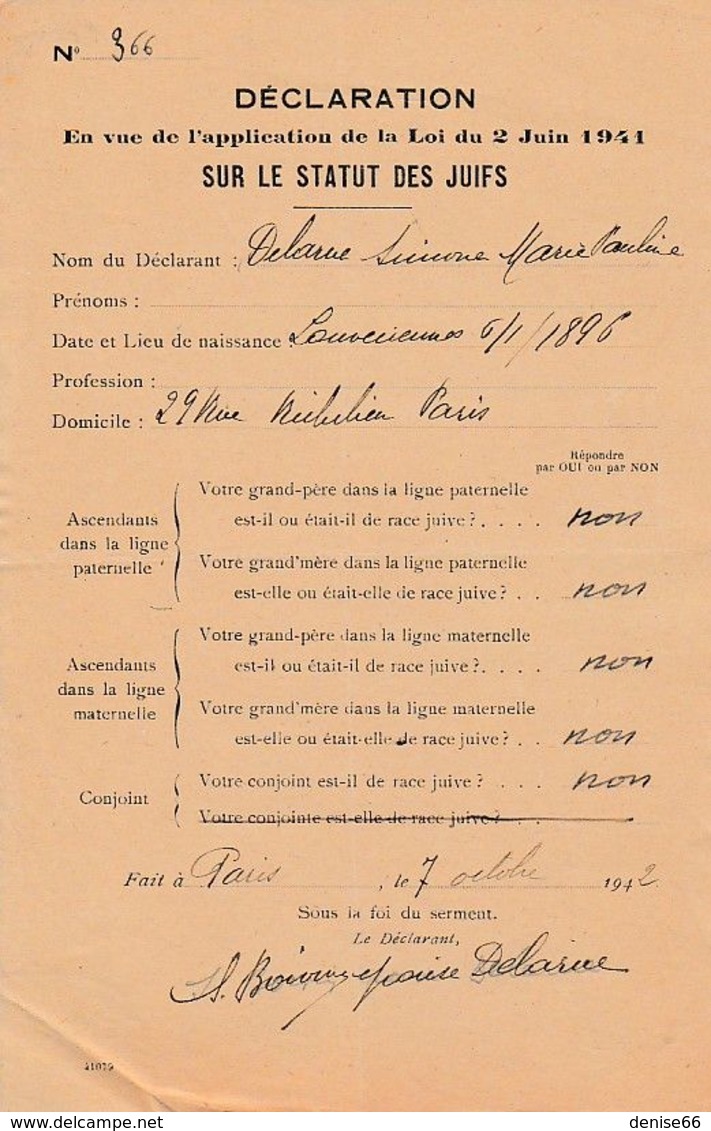 N° 366
DÉCLARATION
En vue de l'application de la Loi du 2 Juin 1941
SUR LE STATUT DES JUIFS
Nom du Déclarant : Delarue Simone Marie Pauline
Prénoms :
Date et Lieu de naissance : Louveciennes 6/1/1896
Profession :
Domicile : 29 Rue Richelieu Paris
Répondre
par OUI ou par NON
Ascendants
dans la ligne
paternelle
Votre grand-père dans la ligne paternelle
est-il ou était-il de race juive ? . . . . non
Votre grand'mère dans la ligne paternelle
est-elle ou était-elle de race juive ? . . non
Ascendants
dans la ligne
maternelle
Votre grand-père dans la ligne maternelle
est-il ou était-il de race juive ? . . . . non
Votre grand'mère dans la ligne maternelle
est-elle ou était-elle de race juive ? . . non
Conjoint
Votre conjoint est-il de race juive ? . . . . non
Votre conjointe est-elle de race juive ? . . .
Fait à Paris, le 7 octobre 1942
Sous la foi du serment.
Le Déclarant,
épouse Delarue
41079
denise66